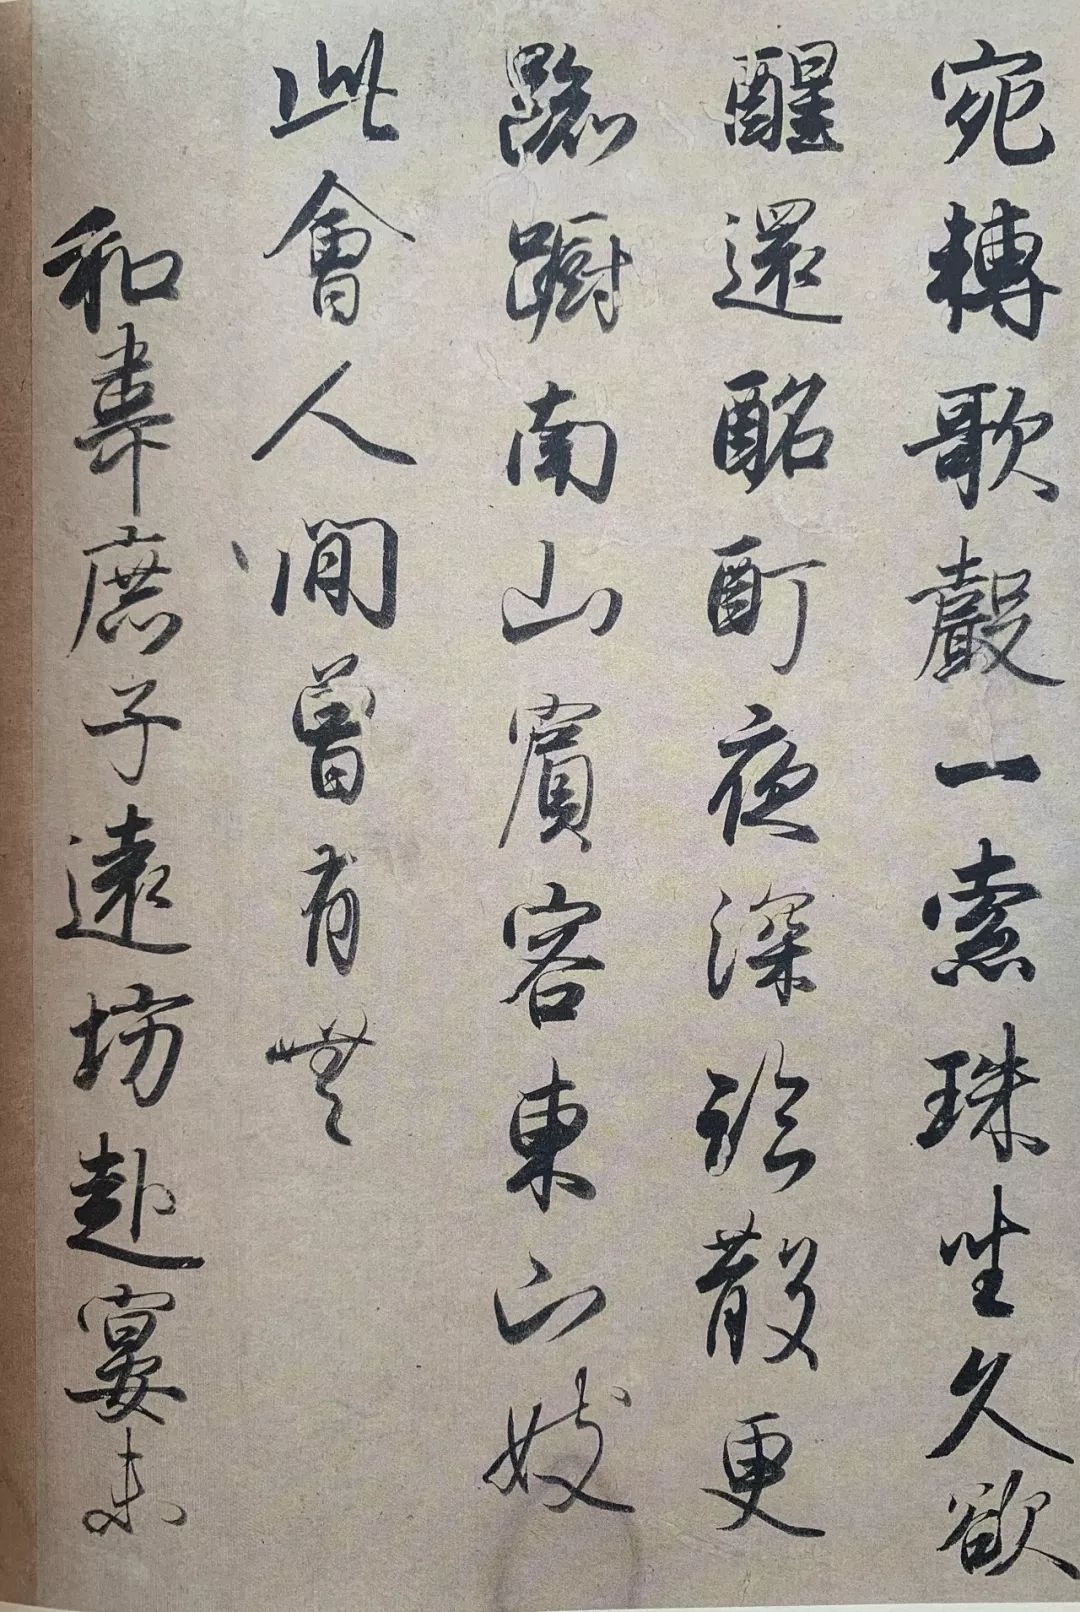 宛轉歌聲一索珠坐久欲
醒還酩酊夜深欲散更
踟躕南山賓客東山妓
此會人間曾有無
和韋庶子遠坊赴宴未